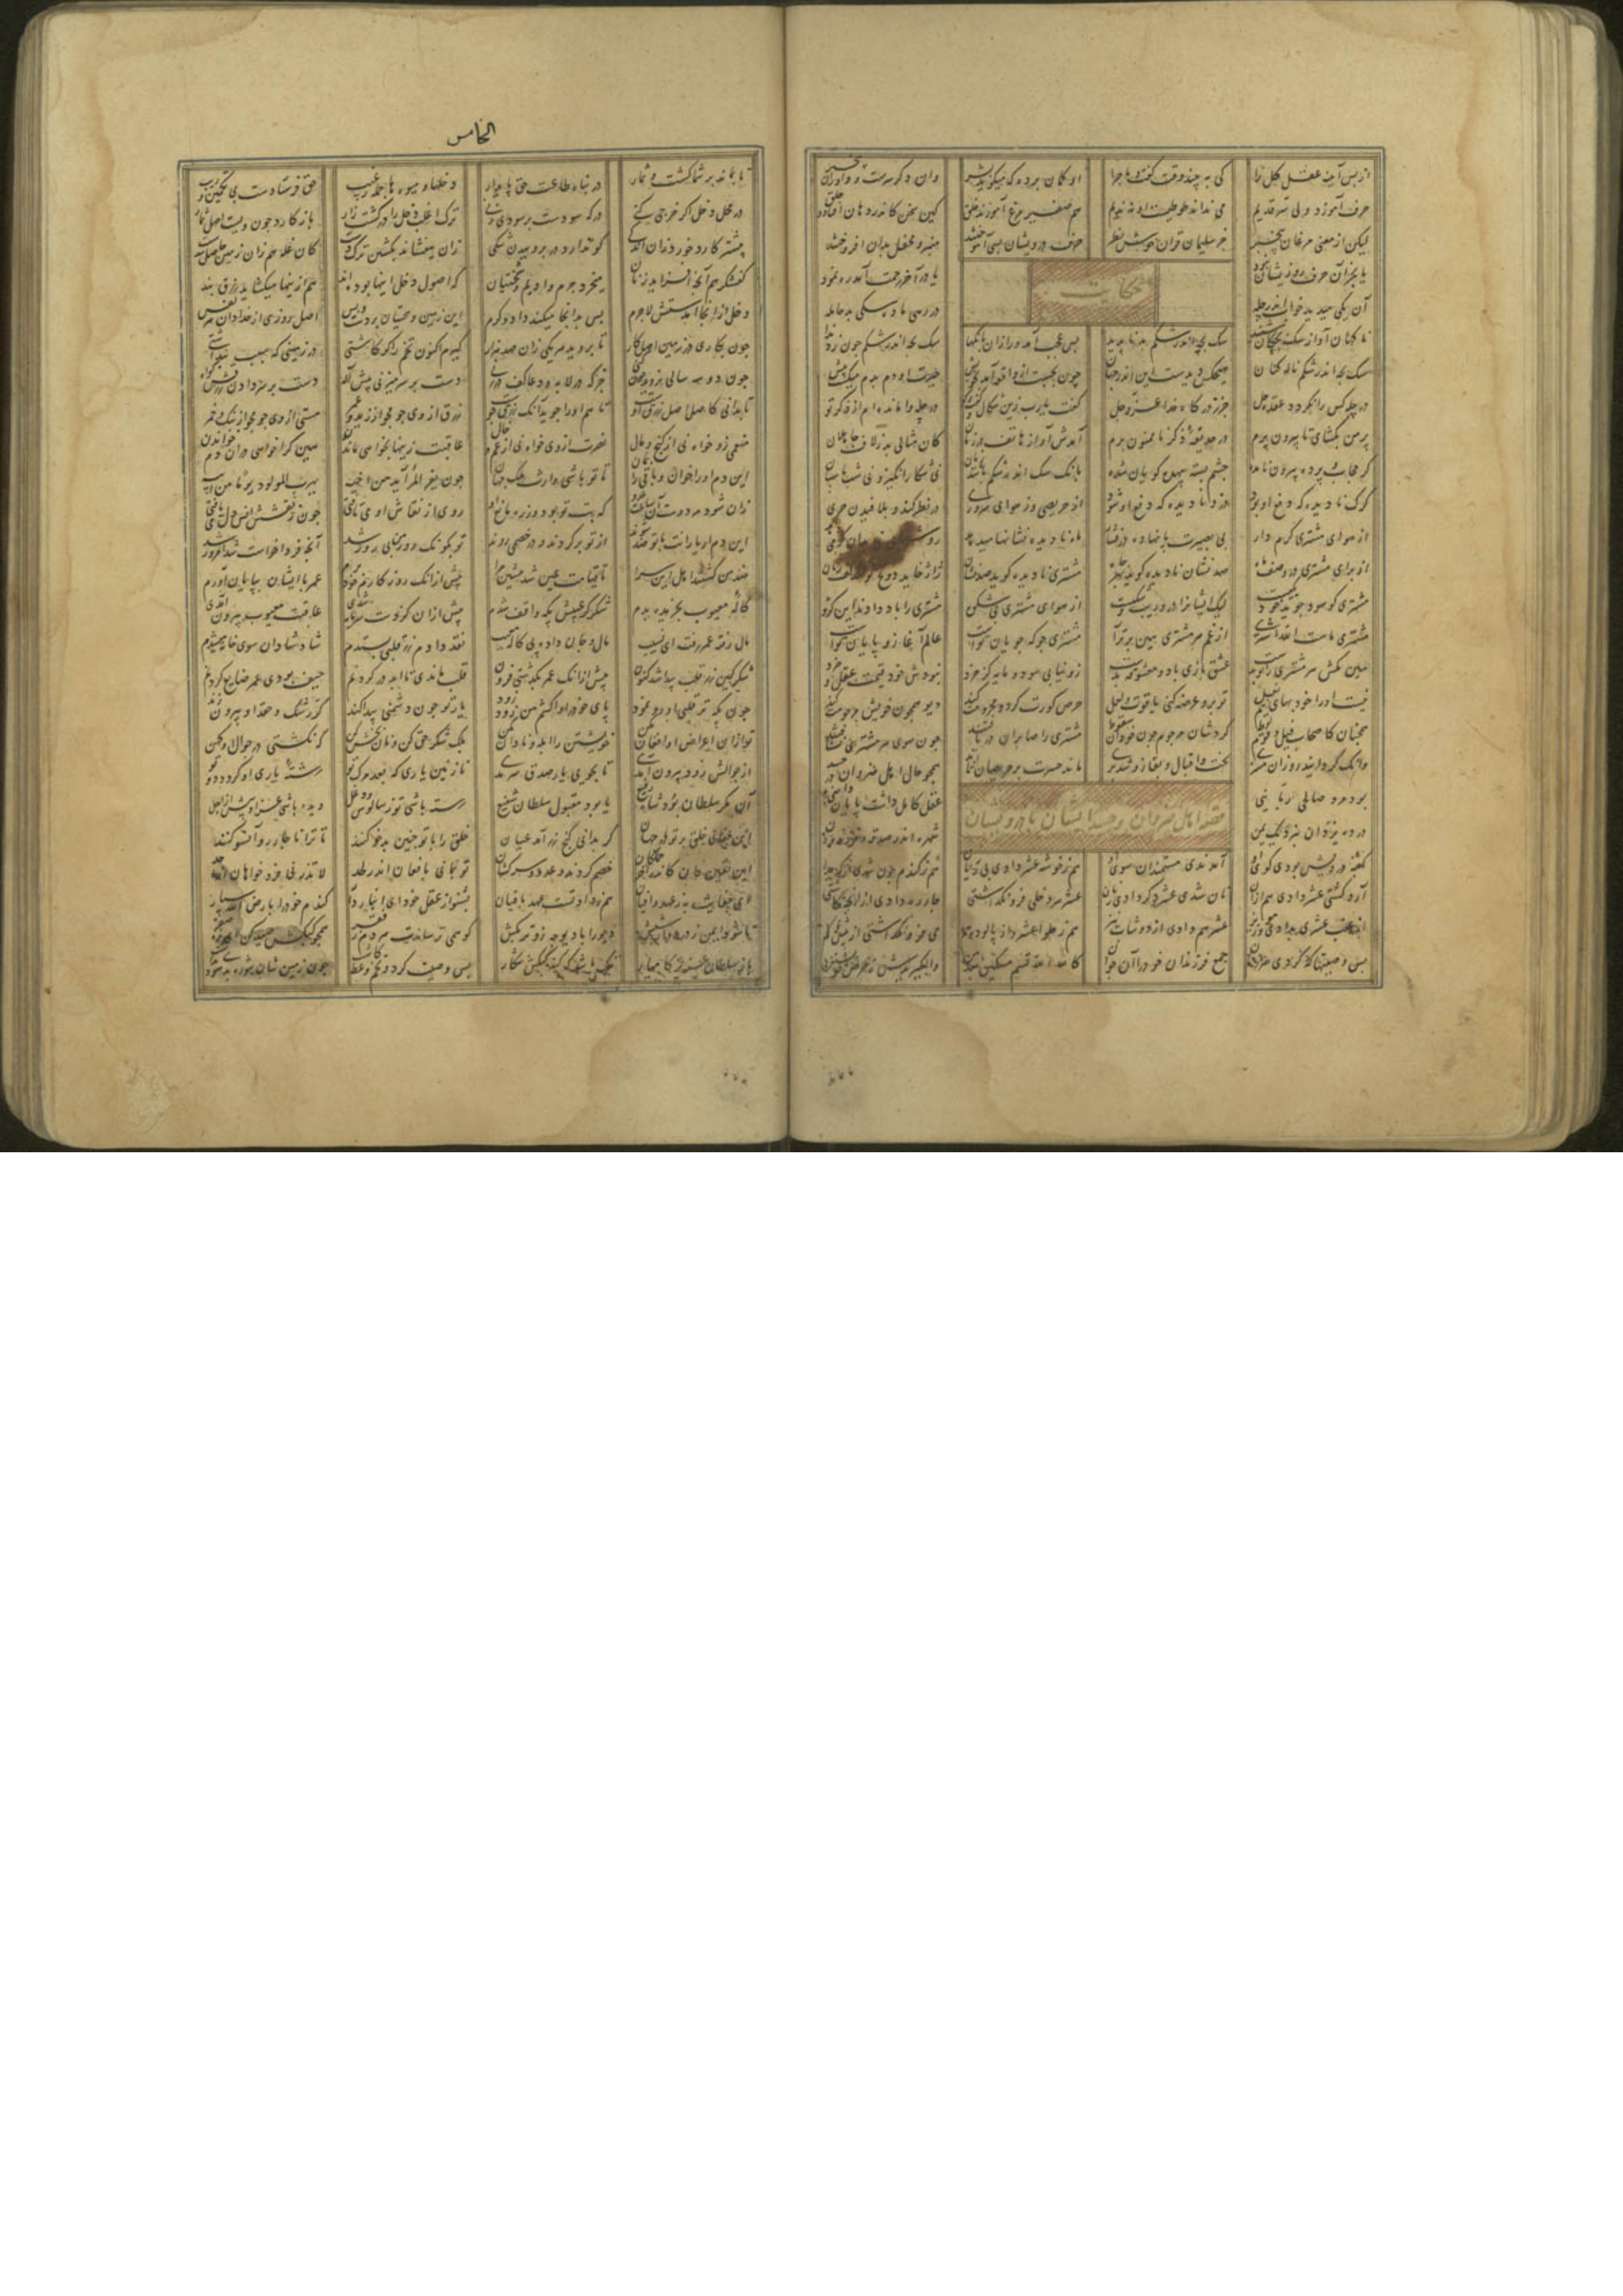 الخامس
از پس آیینه عقل کل را کی به بیند وقت گفت و ماجرا او گمان برده که میگوید بشر وان دگر سرست و او زان بیخبر
حرف آموزد ولی سر قدیم می نداند طوطیست او نه ندیم هم صفیر مرغ آموزند خلق کین سخن کاندر دهان افتاد و حلق
لیکن از معنی مرغان بیخبر جز سلیمان قران خوش نظر حرف درویشان بسی آموختند منبر و محفل بدان افروختند
یا بجز آن حرفشان روزی نبود یا در آخر رحمت آمد ره نمود
حکایت
آن یکی میدید خواب اندر چله در رهی ماده سگی بد حامله
ناگهان آواز سگ بچگان شنید سگ بچه اندر شکم بد ناپدید بس عجب آمد ورا زان بانگها سگ بچه اندر شکم چون زد ندا
سگ بچه اندر شکم ناله کنان هیچکس دیدست این اندر جهان چون بجست از واقعه آمد بخویش حیرت او دم بدم میگشت بیش
در چله کس را نگردد عقده حل جز که درگاه خدا عز و جل گفت یا رب زین شکال و گفت و گو در چله وا مانده ام از ذکر تو
پر من بگشای تا بیرون پرم در حدیقه ذکر ناممنون برم آمدش آواز هاتف در زمان کان مثالی بد ز لاف جاهلان
کز حجاب و پرده بیرون نامده چشم بسته بیهده گویان شده بانگ سگ اندر شکم باشد زیان نی شکار انگیز و نی شب پاسبان
گرگ نادیده که دفع او بود دزد نادیده که دفع او شود از حریصی وز هوای سروری در نظر کند و بلافیدن جری
از هوای مشتری گرم دار بی بصیرت پا نهاده در فشار ماه نادیده نشانها میدهد
از برای مشتری در وصف ماه صد نشان نادیده گوید بهر جاه مشتری نادیده گوید صد نشان ژاژ خاید دوغ
مشتری کو سود جوید خود یکیست لیک ایشانرا درو ریب و شکیست از هوای مشتری بی شکوه مشتری را باد دادند این گروه
مشتری ماست الله اشتری از غم هر مشتری هین برتر آ مشتری جو که جویان تو است عالم آغاز و پایان تو است
هین مکش هر مشتری را تو بدست عشق بازی با دو معشوقه بدست زو نیابی سود و مایه گر خرد نبودش خود قیمت عقل و خرد
نیست او را خود بهای نیم نعل تو برو عرضه کنی یاقوت و لعل حرص کورت کرد و محرومت کند دیو همچون خویش مرجومت کند
همچنان کاصحاب فیل و قوم لوط کردشان مرجوم چون خود آن سخوط مشتری را صابران دریافتند چون سوی هر مشتری نشتافتند
وانک گردانید رو زان مشتری بخت و اقبال و بقا زو شد بری ماند حسرت بر حریصان تا ابد همچو حال اهل ضروان در حسد
قصه اهل ضروان و حسد ایشان با درویشان
بود مرد صالحی ربانیی عقل کامل داشت پایان دانیی
در ده ضروان بنزدیک یمن شهره اندر صدقه و خلق حسن
کعبه درویش بودی کوی او آمدندی مستمندان سوی او هم ز خوشه عشر دادی بی ریا هم ز گندم چون شدی از که جدا
آرد گشتی عشر دادی هم از آن نان شدی عشر دگر دادی ز نان عشر هر دخلی فرو نگذاشتی چار باره دادی از آنچ کاشتی
از عنب عشری بدادی وز مویز عشر هم دادی از دوشاب نیز هم ز حلوا عشر و از پالوده هم می فرو نگذاشتی از بیش و کم
بس وصیتها که کردی هر زمان جمع فرزندان خود را آن جوان کالله الله قسم مسکین بعد من وا مگیریدش ز حرص خویشتن
تا بماند بر شما کشت و ثمار در پناه طاعت حق پایدار دخلها و میوه ها جمله ز غیب حق فرستادست بی تخمین و ریب
در محل دخل اگر خرجی کنی درگه سودست بر سودی زنی ترک اغلب دخل را در کشت زار باز کارد چون ویست اصل ثمار
بیشتر کارد خورد زان اندکی کو ندارد در بروییدن شکی زان بیفشاند بکشتن ترک دست کان غله هم زان زمین حاصل شدست
کفشگر هم آنچه افزاید ز نان میخرد چرم و ادیم و سختیان که اصول دخل اینها بوده اند هم ازینها میگشاید رزق بند
دخل از آنجا آمدستش لاجرم پس بدانجا میکند داد و کرم این زمین و سختیان پردست و بس اصل روزی از خدا دان هر نفس
چون بکاری در زمین اصل کار تا بروید هر یکی زان صد هزار گیرم اکنون تخم را گر کاشتی در زمینی که سبب پنداشتی
چون دو سه سالی نروید چون کنی جز که در لابه و دعا کف در زنی دست بر سر میزنی پیش اله دست بر سر دادن رزقش گواه
تا بدانی کاصل اصل رزق اوست تا هم او را جوید آنک رزق جوست رزق از وی جو مجو از زید و عمر مستی از وی جو مجو از بنگ و خمر
منعمی زو خواه نی از گنج و مال نصرت از وی خواه نی از عم و خال عاقبت زینها بخواهی ماندن هین کرا خواهی دران دم خواندن
این دم او را خوان و باقی را بمان تا تو باشی وارث ملک جهان چون یفر المرء آید من اخیه یهرب المولود یوما من ابیه
زان شود هر دوست آن ساعت عدو که بت تو بود و از ره مانع او روی از نقاش او می تافتی چون ز نقشش انس دل می یافتی
این دم ار یارانت با تو ضد شوند از تو برگردند و در خصمی روند تو بگو نک روز من پیروز شد آنچ فردا خواست شد امروز شد
ضد من گشتند اهل این سرا تا قیامت عین شد پیشین مرا پیش از آنک روزگار خود برم عمر با ایشان بپایان آورم
کاله معیوب بخریده بدم شکر کز عیبش بگه واقف شدم پیش ازان کز دست سرمایه شدی عاقبت معیوب بیرون آمدی
مال رفته عمر رفته ای نسیب مال و جان داده پی کاله معیب نقد دادم زر قلبی بستدم شاد شادان سوی خانه میشدم
شکر کین زر قلب پیدا شد کنون پیش از آنک عمر بگذشتی فزون قلب ماندی تا ابد در گردنم حیف بودی عمر ضایع کردنم
چون بگه تر قلبی او رو نمود پای خود را وا کشم من زود زود یار تو چون دشمنی پیدا کند گر رشک و حقد او بیرون زند
تو ازان اعراض او افغان مکن خویشتن را ابله و نادان مکن بلک شکر حق کن و نان بخش کن که نگشتی در جوال او کهن
از جوالش زود بیرون آمدی تا بجویی یار صدق سرمدی نازنین یاری که بعد مرگ تو رشته یاری او گردد دو تو
آن مگر سلطان بود شاه رفیع یا بود مقبول سلطان شفیع رسته باشی تو ز سالوس و دغل دیده باشی پیش از اجل
این جفای خلق بر تو در جهان گر بدانی گنج زر آمد عیان خلق را با تو چنین بدخو کنند تا ترا ناچار رو آنسو کنند
این یقین دان کاندر آخر جمله شان خصم گردند و عدو و سرکشان تو بمانی با فغان اندر لحد لا تذرنی فرد خواهان از احد
ای جفایت به ز عهد وافیان هم ز داد تست عهد باقیان بشنو از عقل خود ای انباردار گندم خود را بارض الله سپار
تا شود ایمن ز دزد و از شپش دیو را با دیوچه زوتر بکش کو همی ترساندت هر دم ز فقر همچو کبکش صید کن ای نره صقر
باز سلطان عزیز کامیار ننگ باشد که کند کبکش شکار بس وصیت کرد و تخم وعظ کاشت چون زمین شان شوره بد سودی نداشت